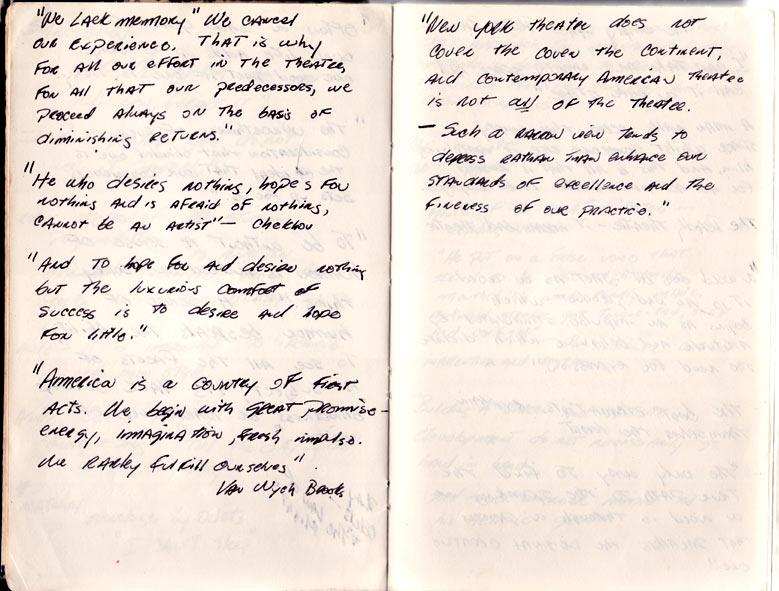 "We Lack memory" We cancel
our experience. That is why
for all our effort in the theater,
for all that our predecessors, we
proceed always on the basis of
diminishing returns."
"He who desires nothing, hopes for
nothing and is afraid of nothing,
cannot be an artist" — Chekhov
"And to hope for and desire nothing
but the luxurious comfort of
success is to desire and hope
for little."
"America is a country of first
acts. We begin with great promise-
energy, imagination, fresh impulse.
We rarely fulfill ourselves"
Van Wych Brooks
"New York theater does not
cover the cover the continent,
and contemporary American theatre
is not all of the theater.
— Such a narrow view tends to
depress rathan than enhance our
standards of excellence and the
fineness of our practice."